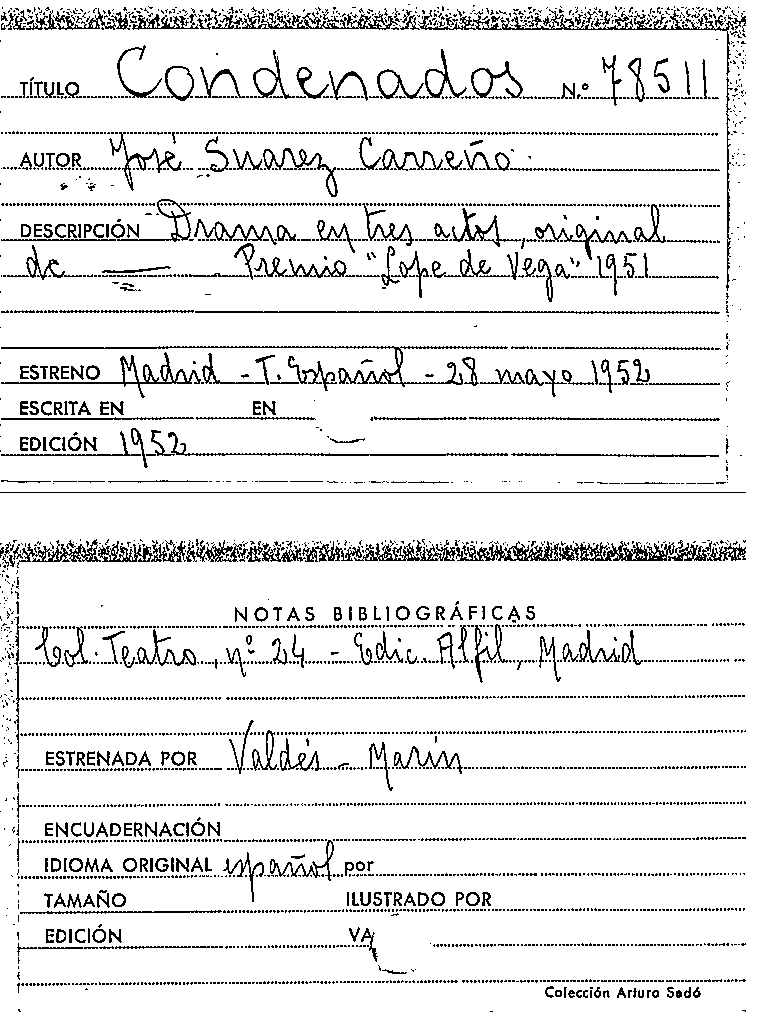 TÍTULO Condenados N.º 78511
AUTOR José Suarez Carreño.
DESCRIPCIÓN Drama en tres actos, original
de —— . Premio "Lope de Vega" 1951
ESTRENO Madrid - T. Español - 28 mayo 1952
ESCRITA EN EN
EDICIÓN 1952
NOTAS BIBLIOGRÁFICAS
Col. Teatro, nº 24 - Edic. Alfil, Madrid
ESTRENADA POR Valdés - Marín
ENCUADERNACIÓN
IDIOMA ORIGINAL español por
TAMAÑO ILUSTRADO POR
EDICIÓN VA
Colección Arturo Sedó